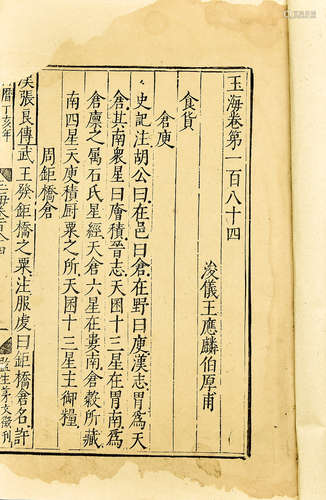 玉海卷第一百八十四
浚儀王應麟伯厚甫
食貨
倉庾
史記注胡公曰在邑曰倉在野曰庾漢志胃爲天
倉其南衆星曰廥積晉志天囷十三星在胃南爲
倉廪之属石氏星經天倉六星在婁南倉穀所藏
南四星天庾積厨粟之所天囷十三星主御糧
周鉅橋倉
張良傳武王發鉅橋之粟注服虔曰鉅橋倉名許
曆丁亥年
監生茅文徵刊